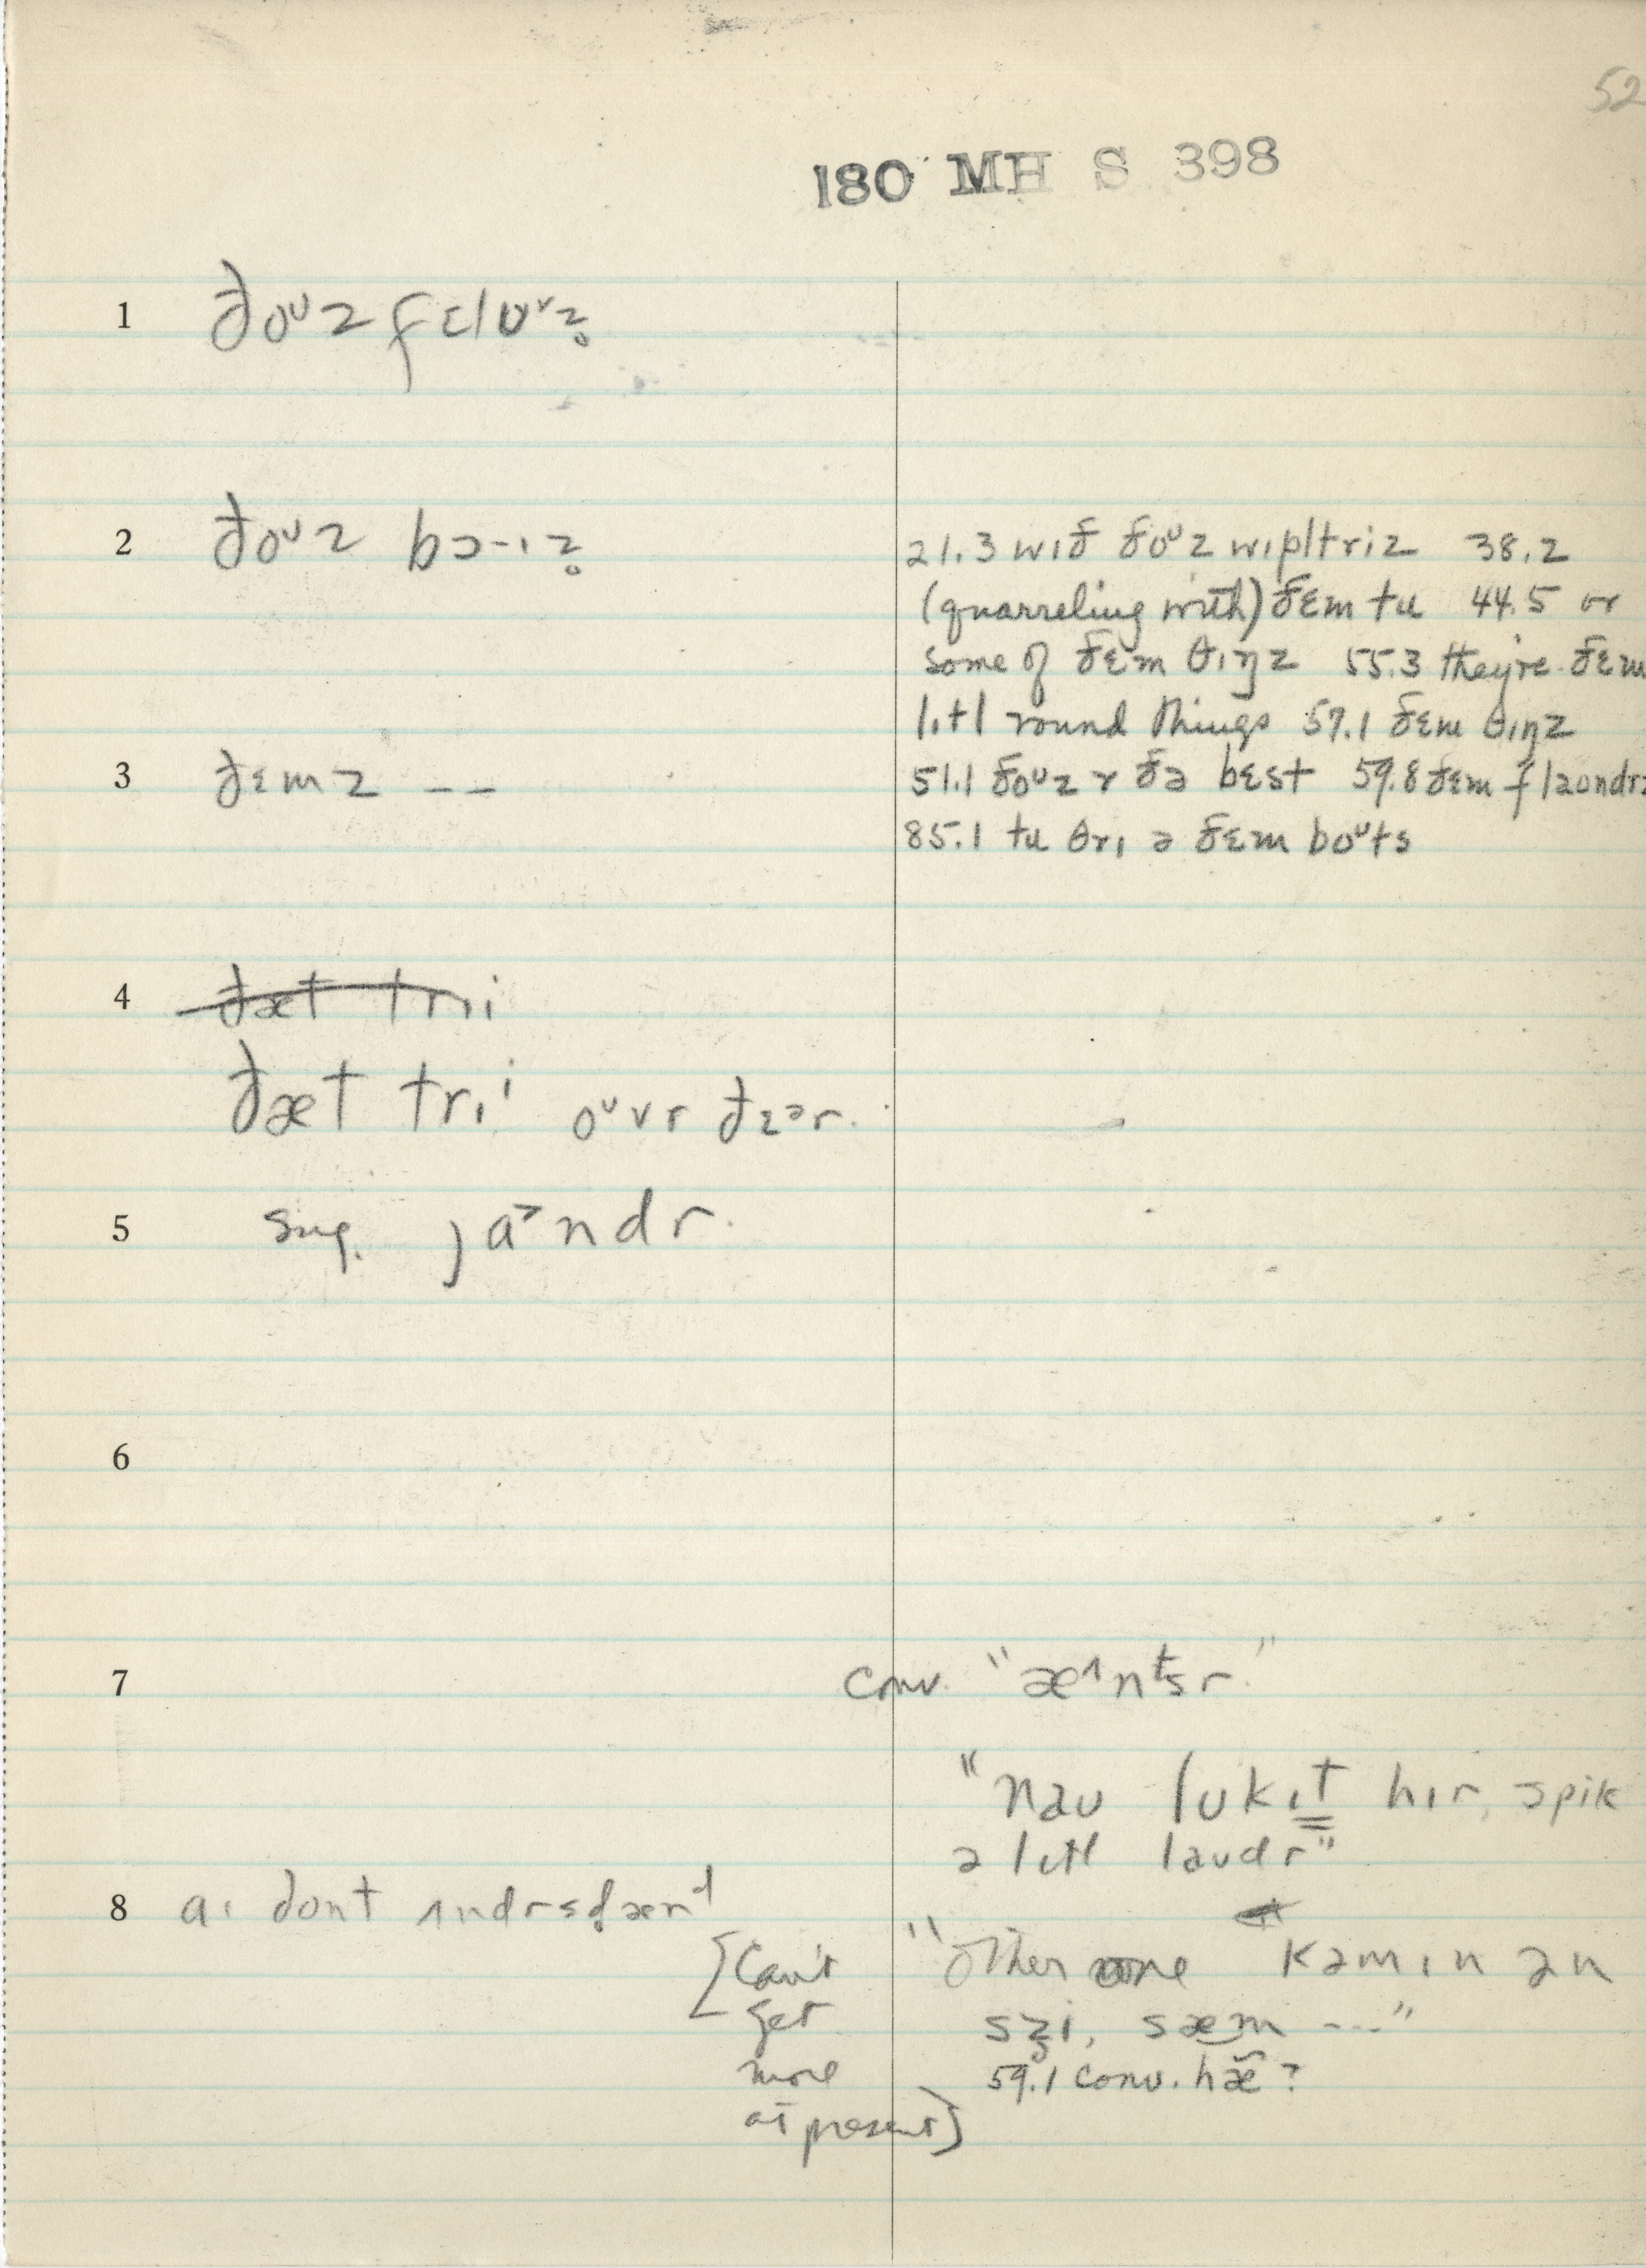 52
180 MH S 398
1 ðoᵘz fɛloᵛz̥
2 ðoᵘz bɔ-ɪz̥
21.3 wɪð ðoᵘz wɪpltriz 38.2
(quarreling with) ðɛm tu 44.5 or
some of ðɛm θɪŋz 55.3 they're ðɛm
lɪtl round things 57.1 ðɛm θɪŋz
3 ðɛmz --
51.1 ðoᵘz r ðə bɛst 59.8 ðɛm flaondrz
85.1 tu θrɪ ə ðɛm boᵘts
4 ðæt trɪi
ðæt trɪⁱ oᵘvr ðɛᵊr.
5 sug. ja˃ndr.
6
7 conv. "æ^nᵗsr."
"naʊ lʊkɪt hɪr, spik
ə lɪtl laʊdr"
8 aɪ dont ʌndrsdænᵈ
[Can't
get
more
at present]
"Other one kəmɪn ən
szi, sæm ---"
59.1 conv. hæ̃?